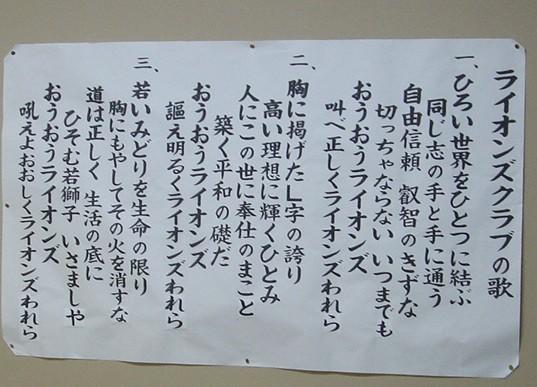 ライオンズクラブの歌
一、ひろい世界をひとつに結ぶ
同じ志の手と手に通う
自由信頼 叡智のきずな
切っちゃならない いつまでも
おうおうライオンズ
叫べ正しくライオンズわれら
二、胸に掲げたL字の誇り
高い理想に輝くひとみ
人にこの世に奉仕のまこと
築く平和の礎だ
おうおうライオンズ
謳え明るくライオンズわれら
三、若いみどりを生命の限り
胸にもやしてその火を消すな
道は正しく 生活の底に
ひそむ若獅子 いさましや
おうおうライオンズ
吼えよおおしくライオンズわれら